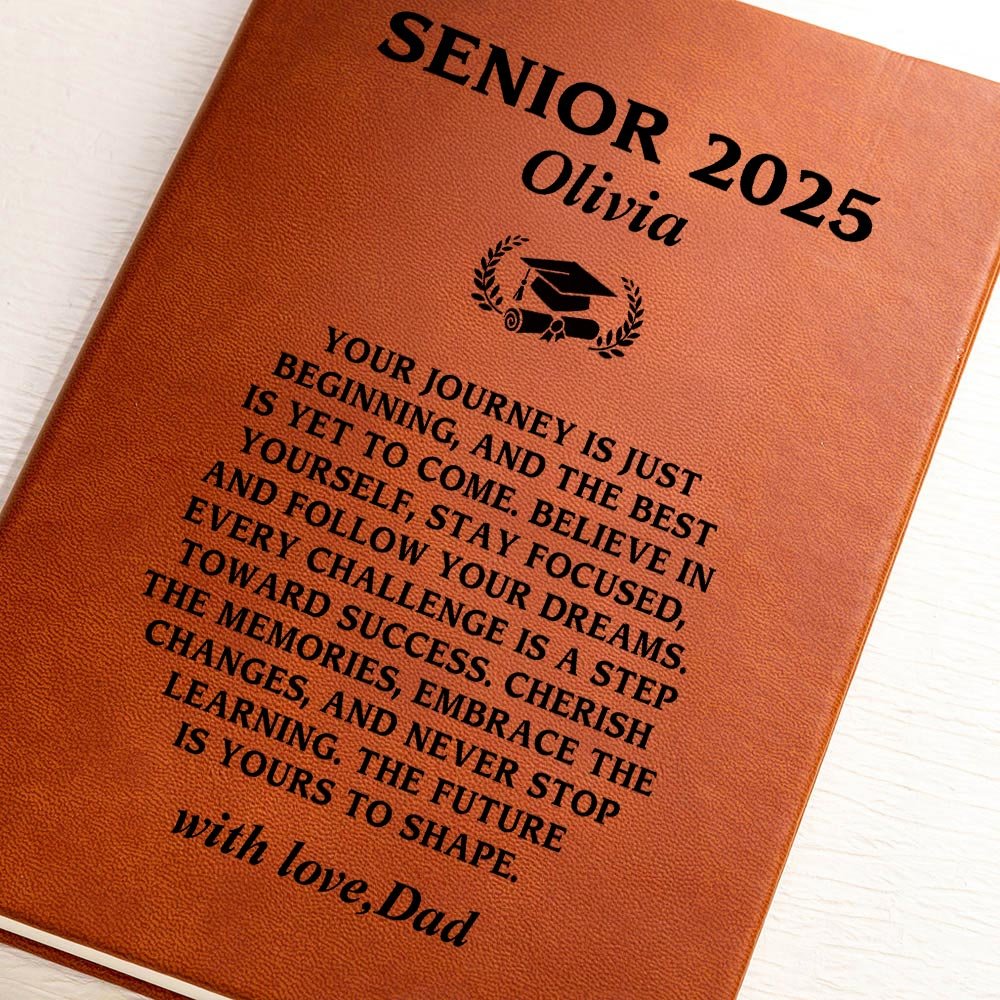 SENIOR 2025
Olivia
YOUR JOURNEY IS JUST
BEGINNING, AND THE BEST
IS YET TO COME. BELIEVE IN
YOURSELF, STAY FOCUSED,
AND FOLLOW YOUR DREAMS.
EVERY CHALLENGE IS A STEP
TOWARD SUCCESS. CHERISH
THE MEMORIES, EMBRACE THE
CHANGES, AND NEVER STOP
LEARNING. THE FUTURE
IS YOURS TO SHAPE.
with love,Dad